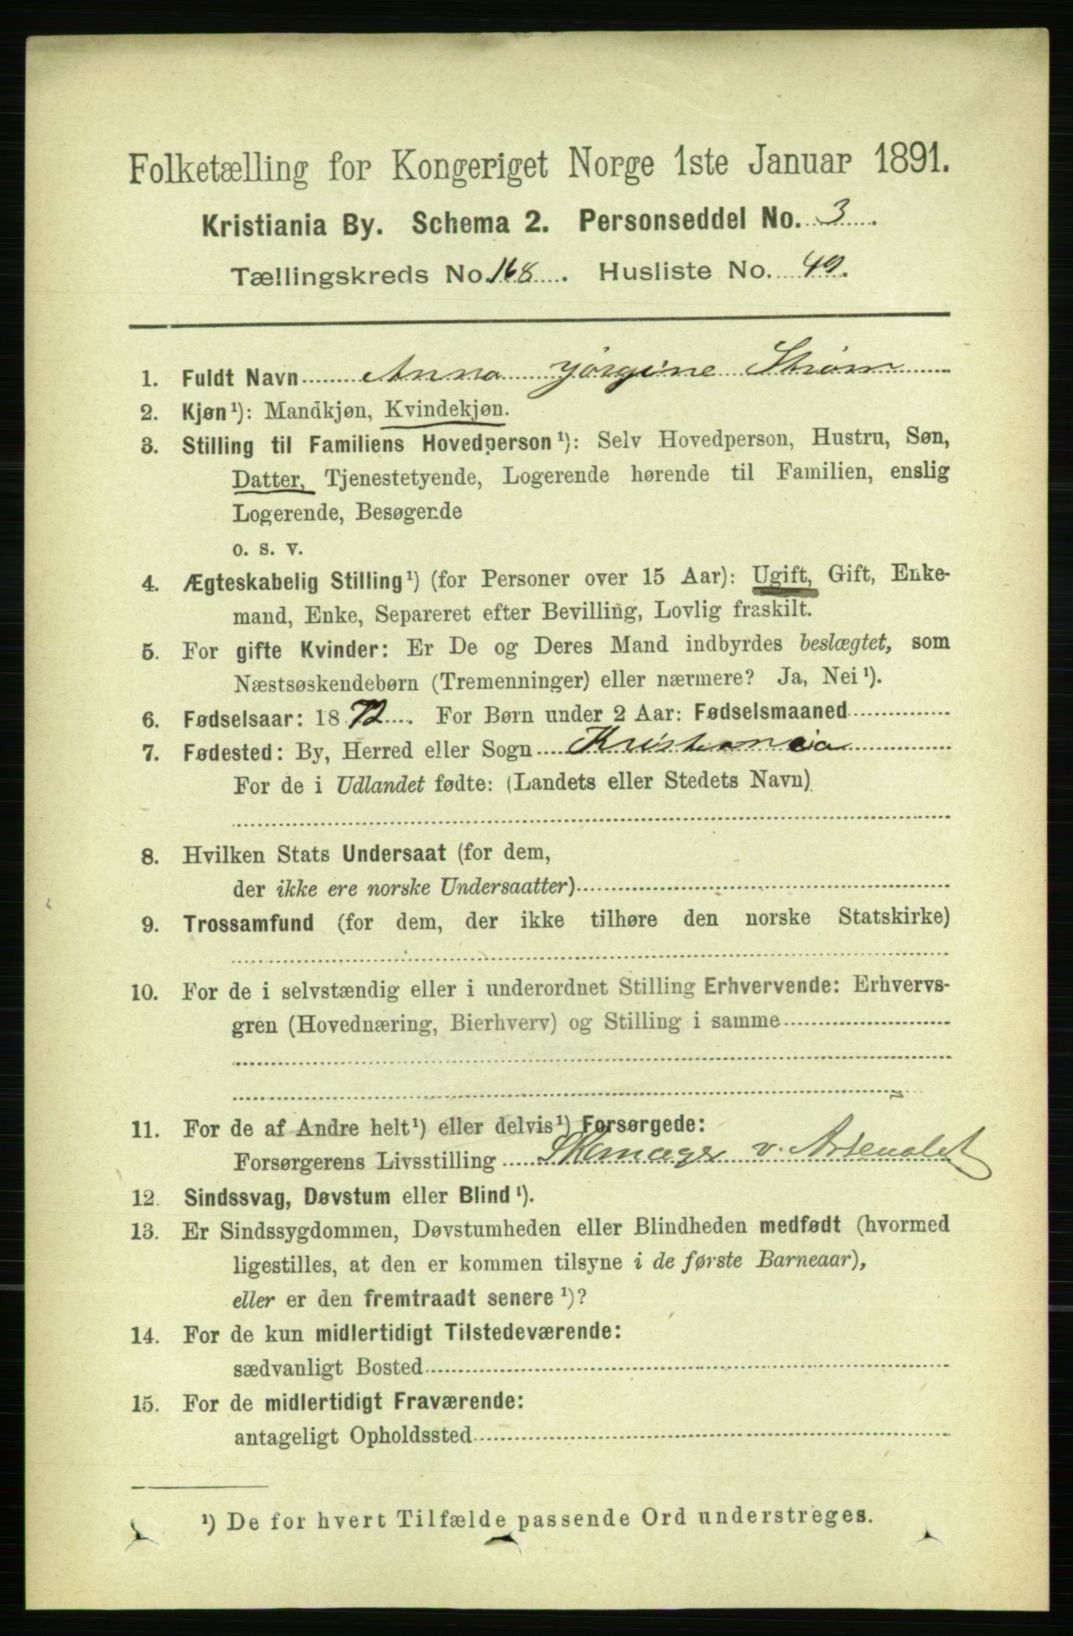 Folketælling for Kongeriget Norge 1ste Januar 1891.
Kristiania By. Schema 2. Personseddel No. 3.
Tællingskreds No. 168. Husliste No. 49.
1. Fuldt Navn Anna Jörgine Strøm
2. Kjøn¹): Mandkjøn, Kvindekjøn.
3. Stilling til Familiens Hovedperson¹): Selv Hovedperson, Hustru, Søn,
Datter, Tjenestetyende, Logerende hørende til Familien, enslig
Logerende, Besøgende
o. s. v.
4. Ægteskabelig Stilling¹) (for Personer over 15 Aar): Ugift, Gift, Enke-
mand, Enke, Separeret efter Bevilling, Lovlig fraskilt.
5. For gifte Kvinder: Er De og Deres Mand indbyrdes beslægtet, som
Næstsøskendebørn (Tremenninger) eller nærmere? Ja, Nei¹).
6. Fødselsaar: 1872. For Børn under 2 Aar: Fødselsmaaned
7. Fødested: By, Herred eller Sogn Kristiania
For de i Udlandet fødte: (Landets eller Stedets Navn)
8. Hvilken Stats Undersaat (for dem,
der ikke ere norske Undersaatter)
9. Trossamfund (for dem, der ikke tilhøre den norske Statskirke)
10. For de i selvstændig eller i underordnet Stilling Erhvervende: Erhvervs-
gren (Hovednæring, Bierhverv) og Stilling i samme
11. For de af Andre helt¹) eller delvis¹) Forsørgede:
Forsørgerens Livsstilling Skomager v. Arsenalet
12. Sindssvag, Døvstum eller Blind¹).
13. Er Sindssygdommen, Døvstumheden eller Blindheden medfødt (hvormed
ligestilles, at den er kommen tilsyne i de første Barneaar),
eller er den fremtraadt senere¹)?
14. For de kun midlertidigt Tilstedeværende:
sædvanligt Bosted
15. For de midlertidigt Fraværende:
antageligt Opholdssted
¹) De for hvert Tilfælde passende Ord understreges.